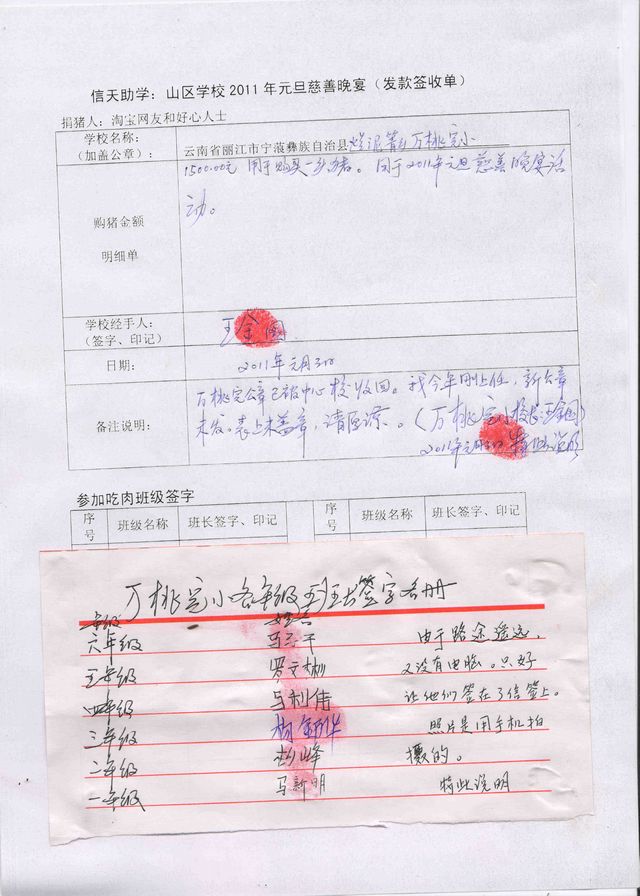 信天助学：山区学校2011年元旦慈善晚宴（发款签收单）
捐猪人：淘宝网友和好心人士
学校名称：
（加盖公章）：
云南省丽江市宁蒗彝族自治县 万桃完小
购猪金额
明细单
1500.00元 用于购买一头猪。用于2011年元旦慈善晚宴活
动。
学校经手人：
（签字、印记）
王金国
日期：
2011年元月3日
备注说明：
万桃完公章已被中心校收回。我今年刚上任，新公章
未发。表上未盖章，请原谅。（万桃完小校长：王金国）
2011年元月3日 特此说明
参加吃肉班级签字
序号 班级名称 班长签字、印记 序号 班级名称 班长签字、印记
万桃完小各年级班长签字名册
年级 姓名
六年级 由于路途遥远，
五年级 罗文彬 又没有电脑。只好
四年级 马利伟 让他们签在了信笺上。
三年级 杨 华 照片是用手机拍
二年级 峰 摄的。
一年级 马新明 特此说明